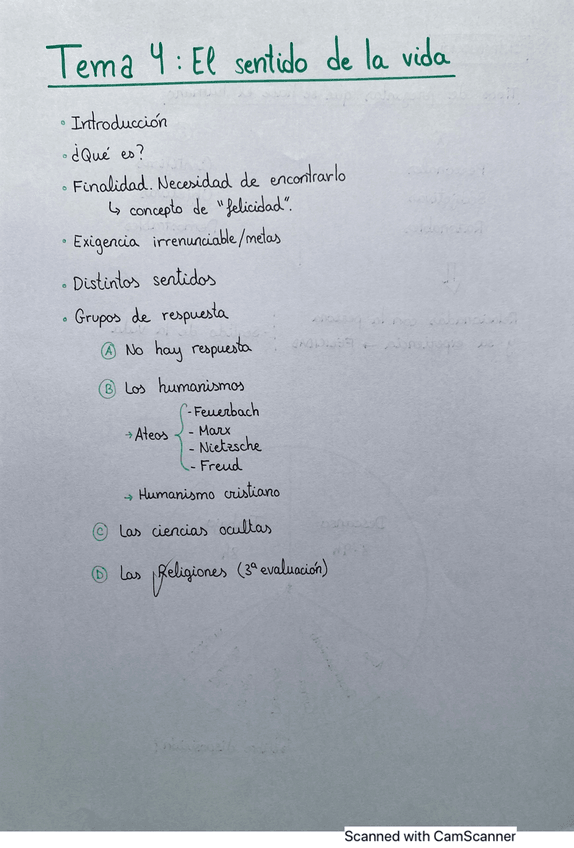 Tema 4: El sentido de la vida
◦ Introducción
◦ ¿Qué es?
◦ Finalidad. Necesidad de encontrarlo
↳ concepto de "felicidad".
◦ Exigencia irrenunciable/metas
◦ Distintos sentidos
◦ Grupos de respuesta
Ⓐ No hay respuesta
Ⓑ Los humanismos
→ Ateos { - Feuerbach
- Marx
- Nietzsche
- Freud
→ Humanismo cristiano
Ⓒ Las ciencias ocultas
Ⓓ Las Religiones (3ª evaluación)
Scanned with CamScanner